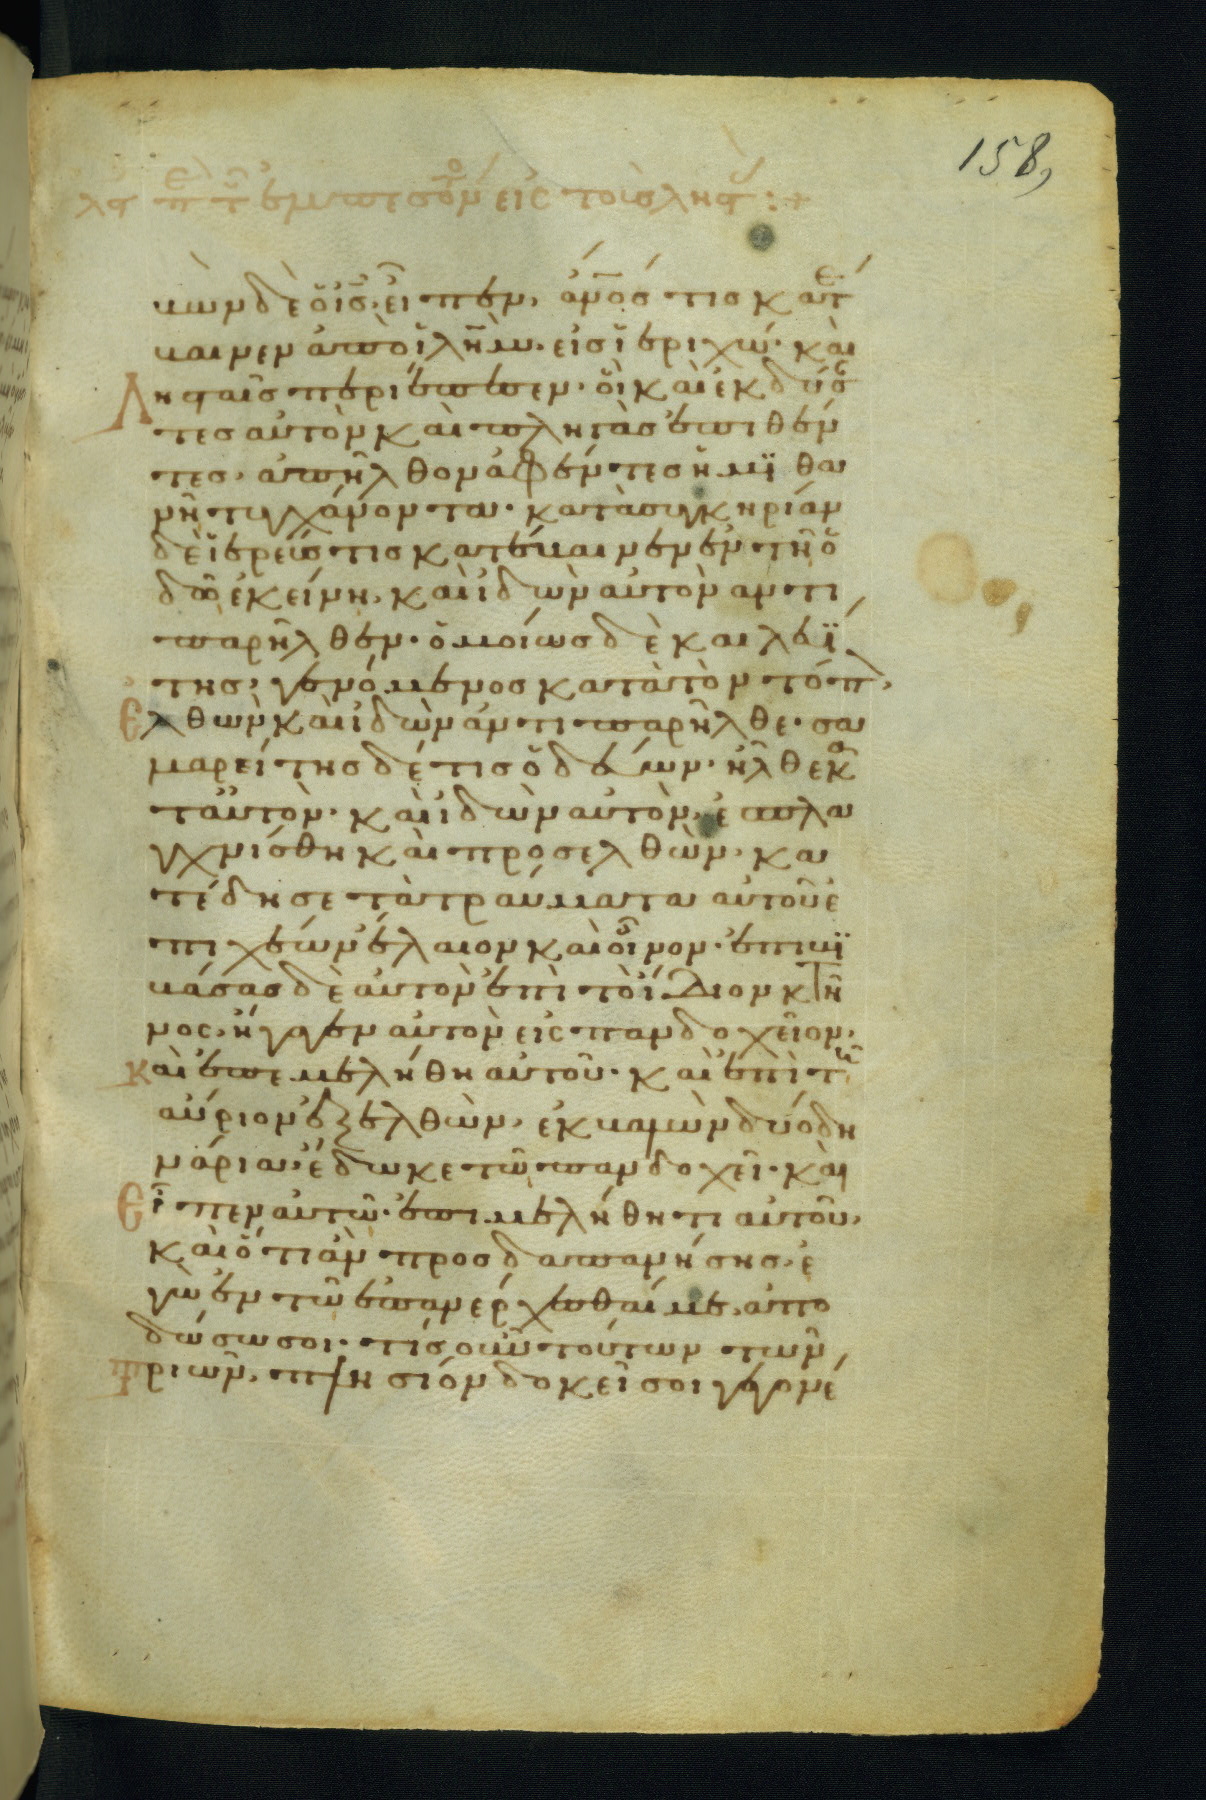 158,
λϛ πε τοῦ ἐμπεσόντος εἰς τοὺς ληστάς :+
βὼν δὲ ὁ ις, εἶπεν, ἀνος τις κατέ
βαινεν ἀπὸ ϊλημ. εἰς ϊεριχώ. καὶ
Λησταῖς περιέπεσεν. οἳ καὶ ἐκδύσαν
τες αὐτὸν καὶ πληγὰς ἐπιθέν
τες, ἀπῆλθον ἀφέντες ἡμϊθα
νῆ τυγχάνοντα. κατὰ συγκηρίαν
δὲ ϊερεύς τις κατέβαινεν ἐν τῆ ὁ
δῶ ἐκείνη, καὶ ἰδὼν αὐτὸν αντι
παρῆλθεν. ὁμοίως δὲ και λευϊ
της, γενόμενος κατὰ τὸν τόπ,
Ελθὼν καὶ ἰδὼν ἀντιπαρῆλθε. σα
μαρείτης δέ τις ὁδεύων, ἦλθε κα
τ αὐτὸν. καὶ ἰδὼν αὐτὸν, ἐσπλα
γχνίσθη καὶ προσελθὼν, κα
τέδησε τὰ τραύματα αὐτοῦ ἐ
πιχέων ἔλαιον καὶ οἶνον. ἐπιβϊ
βάσας δὲ αὐτὸν ἐπὶ τὸ ἴδιον κτῆ
νος, ἤγαγεν αὐτὸν εἰς πανδοχεῖον,
καὶ ἐπεμελήθη αὐτοῦ. καὶ ἐπὶ τὴν
αὔριον ἐξελθὼν, ἐκβαλὼν δύο δη
νάρια, ἔδωκε τῶ πανδοχεῖ. καὶ
Εἶπεν αὐτῶ. ἐπιμελήθητι αὐτοῦ,
καὶ ὅτι ἂν προσδαπανήσης, ἐ
γὼ ἐν τῶ ἐπανέρχεσθαί με, ἀπο
δώσω σοι. τίς οὖν τούτων τῶν
τριῶν, πλησίον δοκεῖ σοι γεγονέ